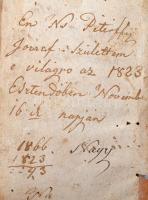 En Ns Péterffy
Jozsef születtem
e világra az 1823
Esztendőben Novemb
16ik napjan
1866 Nagy
1823
43